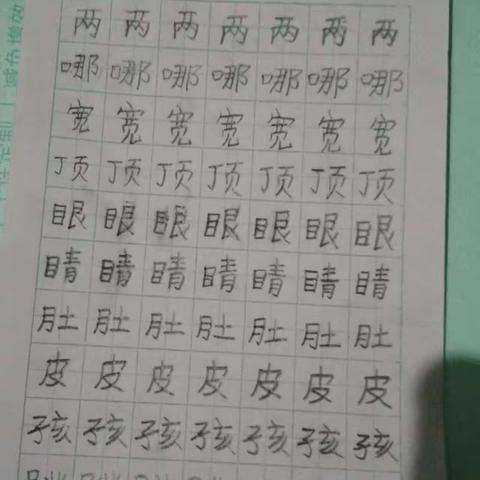 两两两两两两两
哪哪哪哪哪哪哪
宽宽宽宽宽宽宽
顶顶顶顶顶顶顶
眼眼眼眼眼眼眼
睛睛睛睛睛睛睛
肚肚肚肚肚肚肚
皮皮皮皮皮皮皮
孩孩孩孩孩孩孩